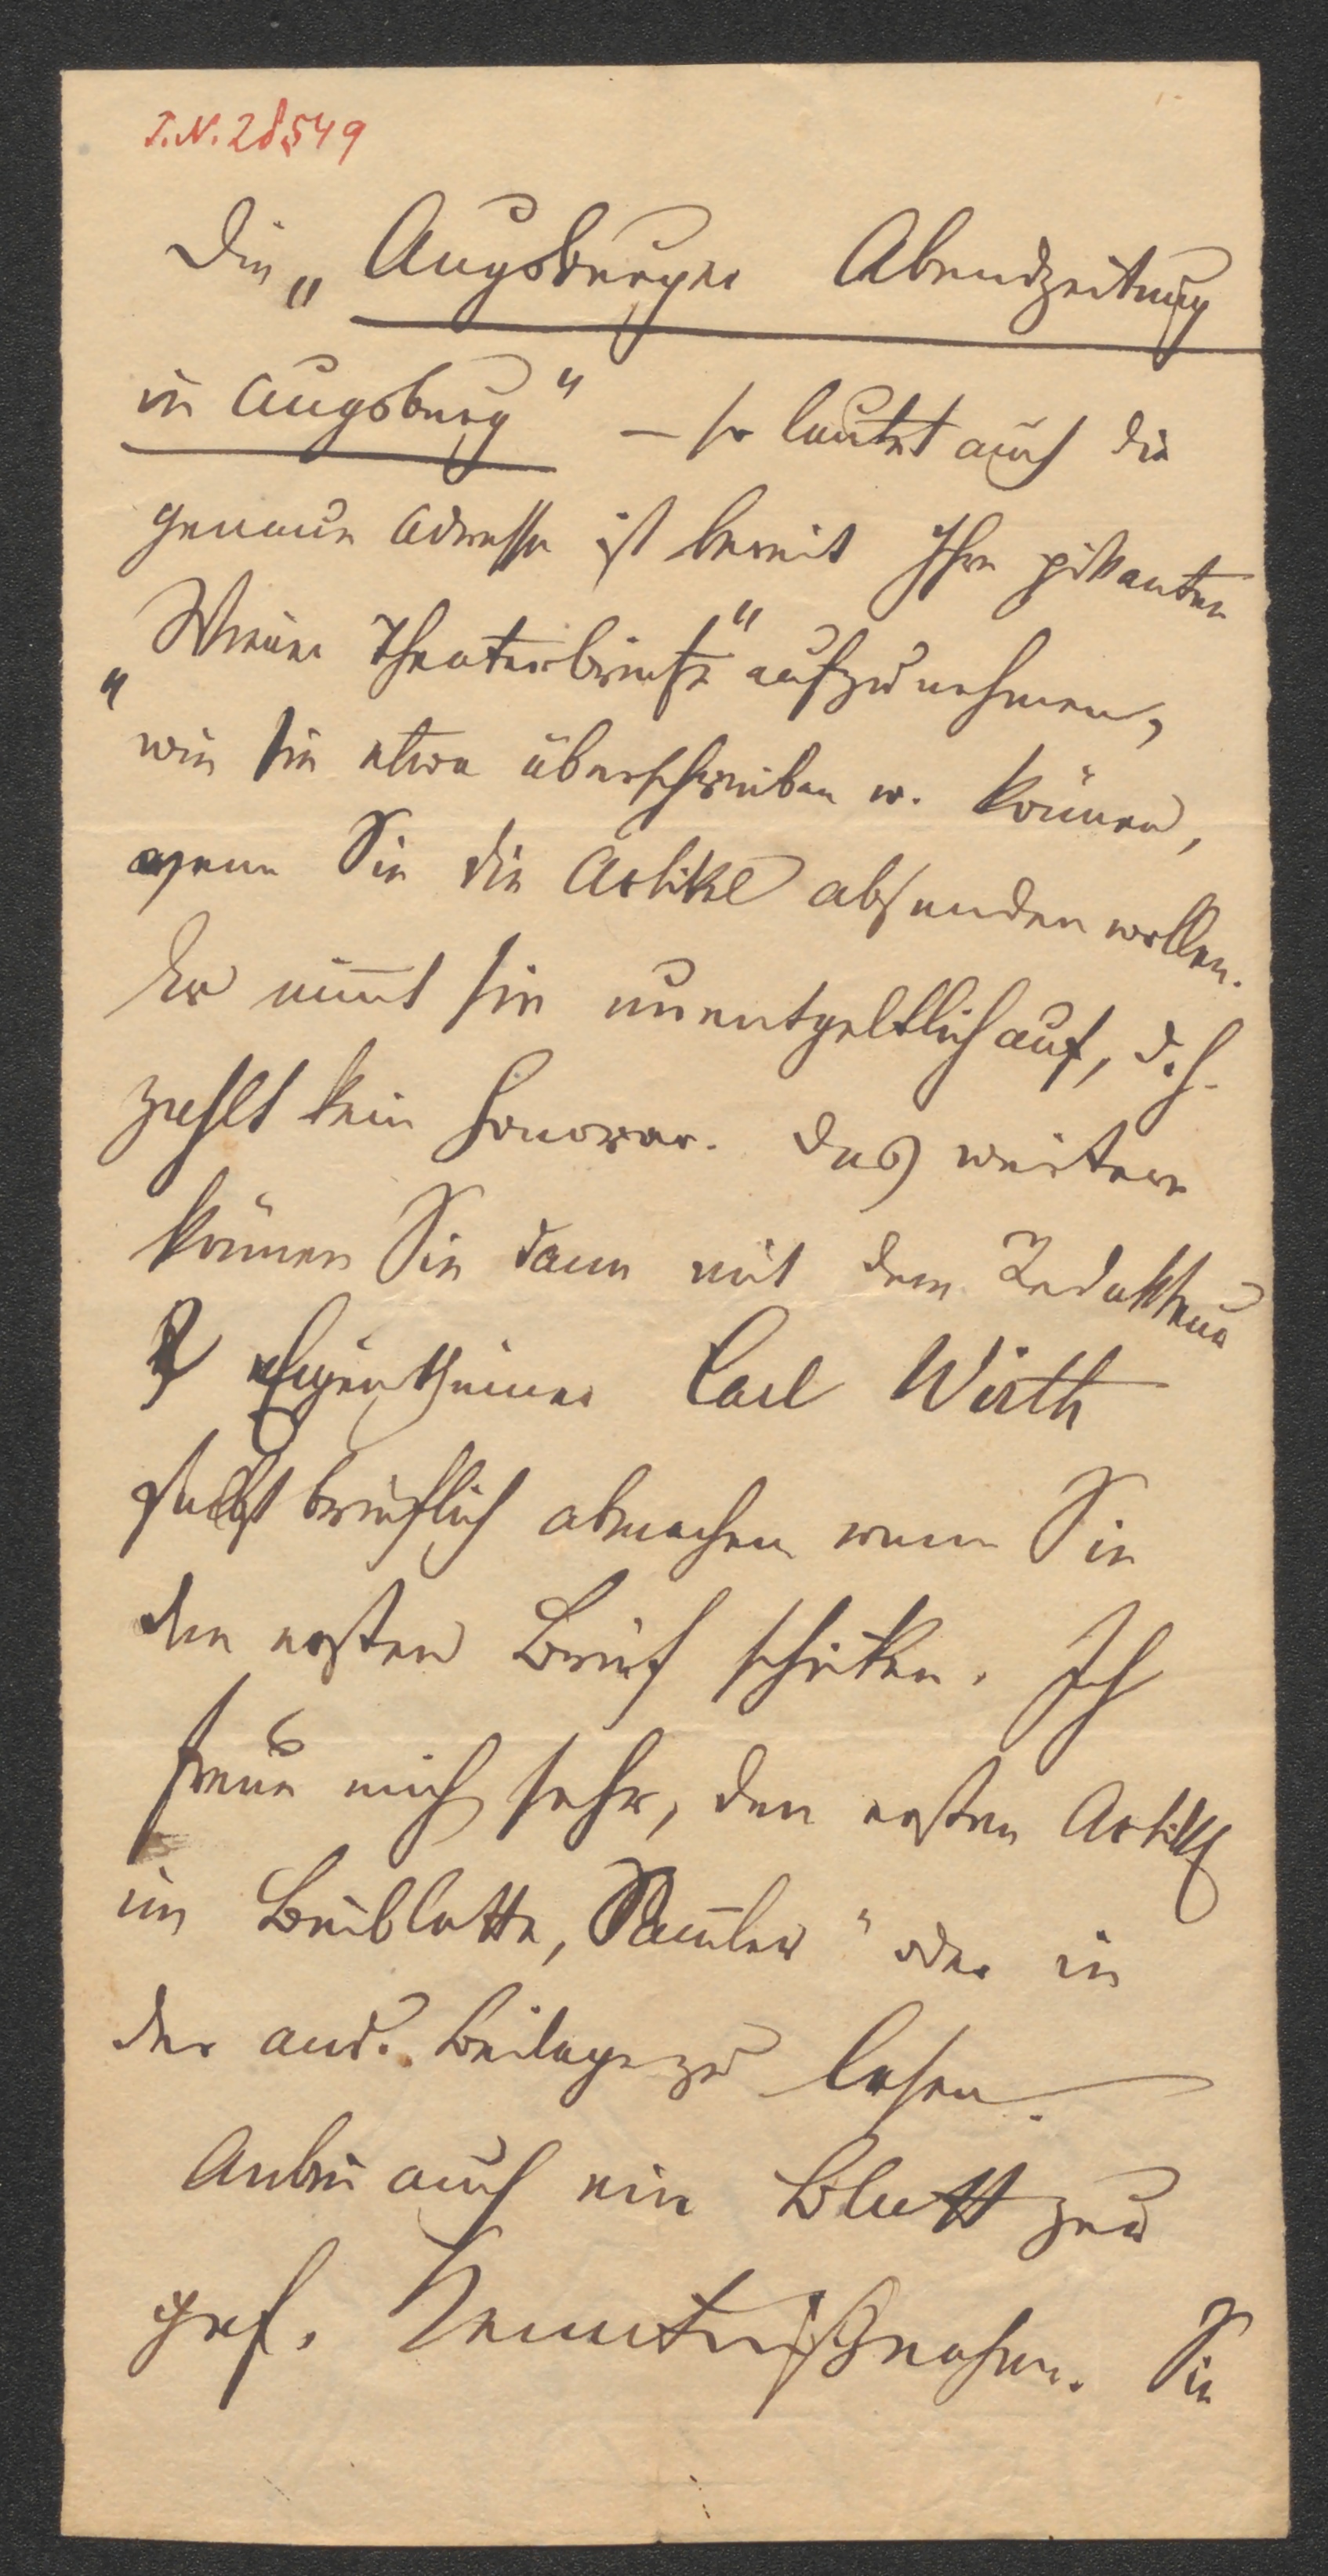 I.N. 28549
Die „Augsburger Abendzeitung
in Augsburg" – so lautet auch die
genaue Adresse ist bereit Ihre pikanten
„Wiener Theaterbriefe" aufzunehmen,
wie sie etwa überschrieben w. können,
wenn Sie die Artikel absenden wollen.
Er nimt sie unentgeltlich auf, d. h.
zahlt kein Honorar. Das weitere
können Sie dann mit dem Redakteur
& Eigenthümer Carl Wirth
selbst brieflich abmachen wenn Sie
den ersten Brief schicken. Ich
freue mich sehr, den ersten Artikel
im Beiblatte „Samler" oder in
der and. Beilage zu lesen.
Anbei auch ein Blatt zur
gef. Kenntnißnahme. Sie